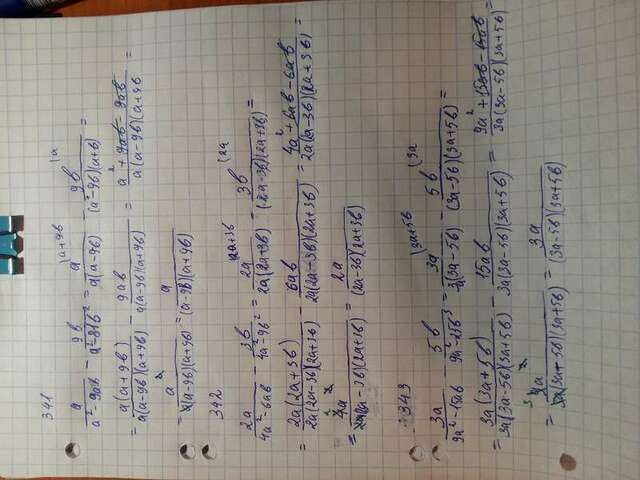 341
a/(a² - 9ab) - 9b/(a² - 81b²) = a^(a+9b)/(a(a-9b)) - 9b^(a)/((a²-9b)(a+b)) =
= a(a+9b)/(a(a-9b)(a+9b)) - 9ab/(a(a-9b)(a+9b)) = (a² + 9ab - 9ab)/(a(a-9b)(a+9b) =
= a²/(a(a-9b)(a+9b)) = a/((a-9b)(a+9b))
342
2a/(4a² - 6ab) - 3b/(4a² - 9b²) = 2a^(2a+3b)/(2a(2a+3b)) - 3b^(2a)/((2a-3b)(2a+3b)) =
= 2a(2a+3b)/(2a(2a-3b)(2a+3b)) - 6ab/(2a(2a-3b)(2a+3b)) = (4a² + 6ab - 6ab)/(2a(2a-3b)(2a+3b)) =
= 4a²/(2a(2a-3b)(2a+3b)) = 2a/((2a-3b)(2a+3b))
343
3a/(9a² - 15ab) - 5b/(9a² - 25b³) = 3a^(3a+5b)/(3a(3a-5b)) - 5b^(3a)/((3a-5b)(3a+5b)) =
= 3a(3a+5b)/(3a(3a-5b)(3a+5b)) - 15ab/(3a(3a-5b)(3a+5b)) = (9a² + 15ab - 15ab)/(3a(3a-5b)(3a+5b)) =
= 9a²/(3a(3a-5b)(3a+5b)) = 3a/((3a-5b)(3a+5b))